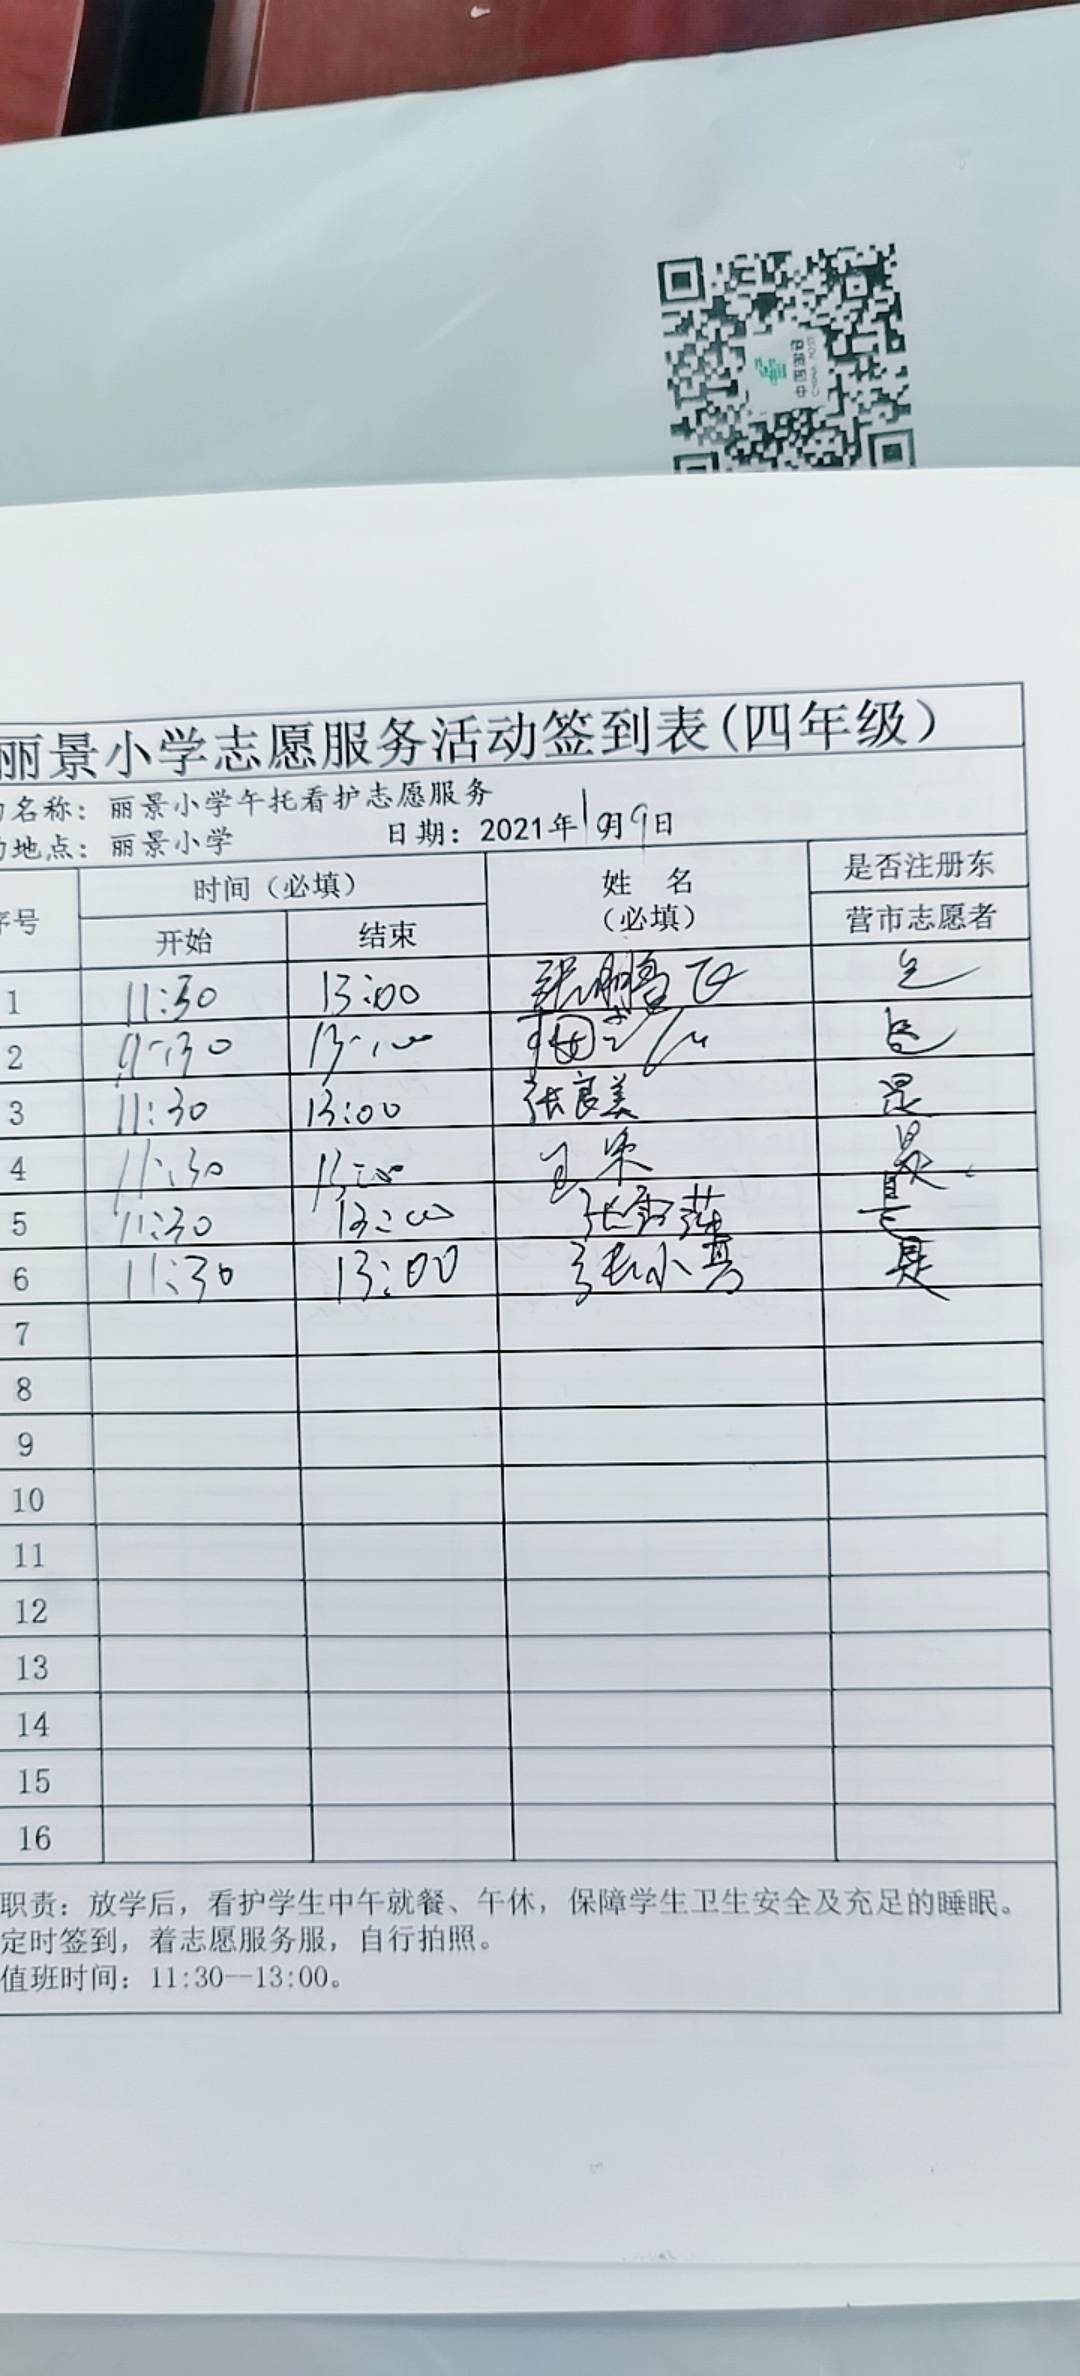 丽景小学志愿服务活动签到表(四年级)
名称：丽景小学午托看护志愿服务
地点：丽景小学 日期：2021年10月9日
序号 时间（必填） 姓 名（必填） 是否注册东营市志愿者
开始 结束
1 11:30 13:00 张鹏飞 是
2 11:30 13:00 是
3 11:30 13:00 张良美 是
4 11:30 13:00 是
5 11:30 13:00 张雪莲 是
6 11:30 13:00 张小真 是
7
8
9
10
11
12
13
14
15
16
职责：放学后，看护学生中午就餐、午休，保障学生卫生安全及充足的睡眠。
定时签到，着志愿服务服，自行拍照。
值班时间：11:30—13:00。